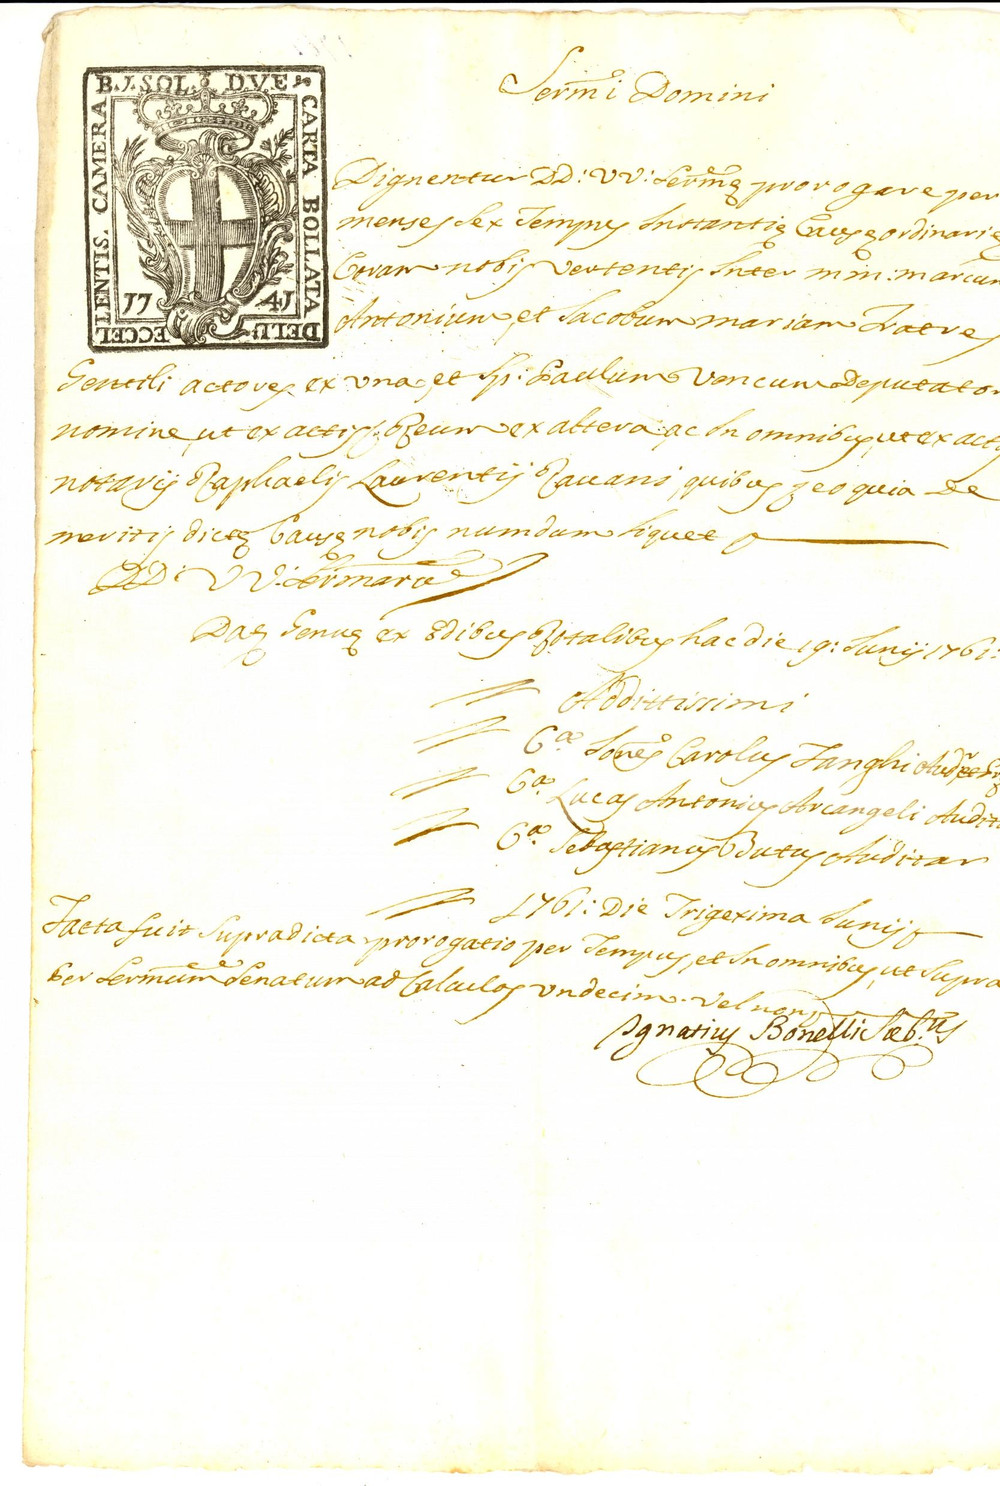 B.7. SOL: DVE
CARTA BOLLATA
DELL'
ECCELLENTIS. CAMERA
1741
Serm̃i Domini
Dignentur DD: VV: Serm̃ę prorogare per
menses sex Tempus Instantię Causę ordinarię
Coram nobis vertentis Inter MM: Marcum
Antonium, et Iacobum Mariam Fratres
Gentili actores ex una, et Sp: Paulum Vencum Deputator
nomine, ut ex actis, Reum ex altera, ac In omnibus, ut ex actis
notarij Raphaelis Laurentij Ravani, quibus eo quia De
meritis dictę Causę nobis numdum liquet
DD: VV: Serm̃arũ
Dał Genuę ex Ędibus Rotalibus hac die 19: Iunij 1761:
Addittissimi
Cae Ioñes Carolus Fanghi Audr
Cae Lucas Antonius Arcangeli Audit
Cae Sebastianus Butus Auditor
1761: Die Trigexima Iunij
Facta fuit Supradicta prorogatio per Tempus, et In omnibus, ut Supra
Per Serm̃um Senatum ad Calculos undecim
Ignatius Bonelli